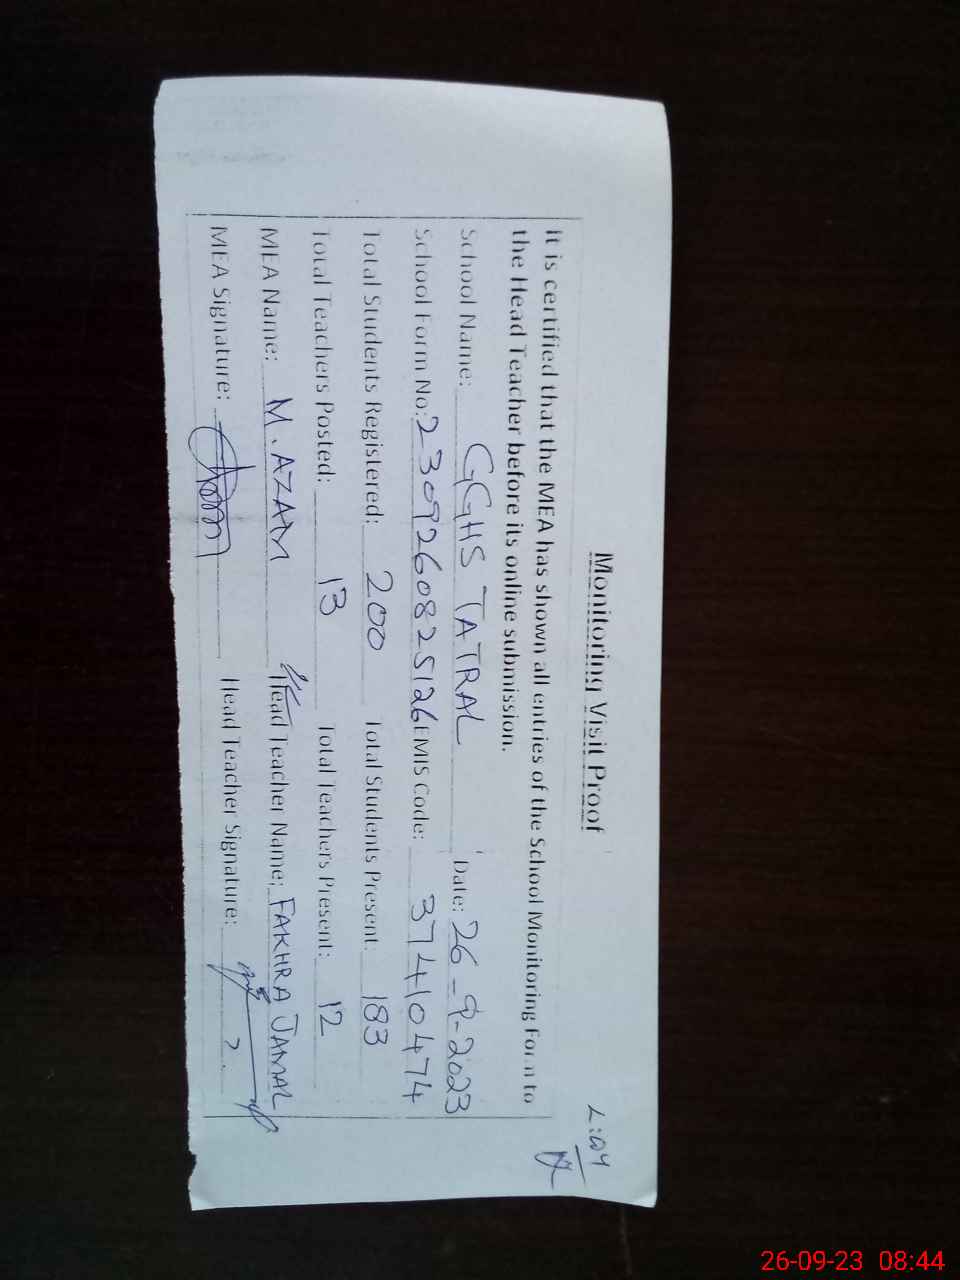 Monitoring Visit Proof
It is certified that the MEA has shown all entries of the School Monitoring Form to
the Head Teacher before its online submission.
School Name: GGHS TATRAL Date: 26-9-2023
School Form No: 2309260825126 EMIS Code: 37410474
Total Students Registered: 200 Total Students Present: 183
Total Teachers Posted: 13 Total Teachers Present: 12
MEA Name: M. AZAM Head Teacher Name: FAKHRA JAMAL
MEA Signature: Head Teacher Signature:
26-09-23 08:44